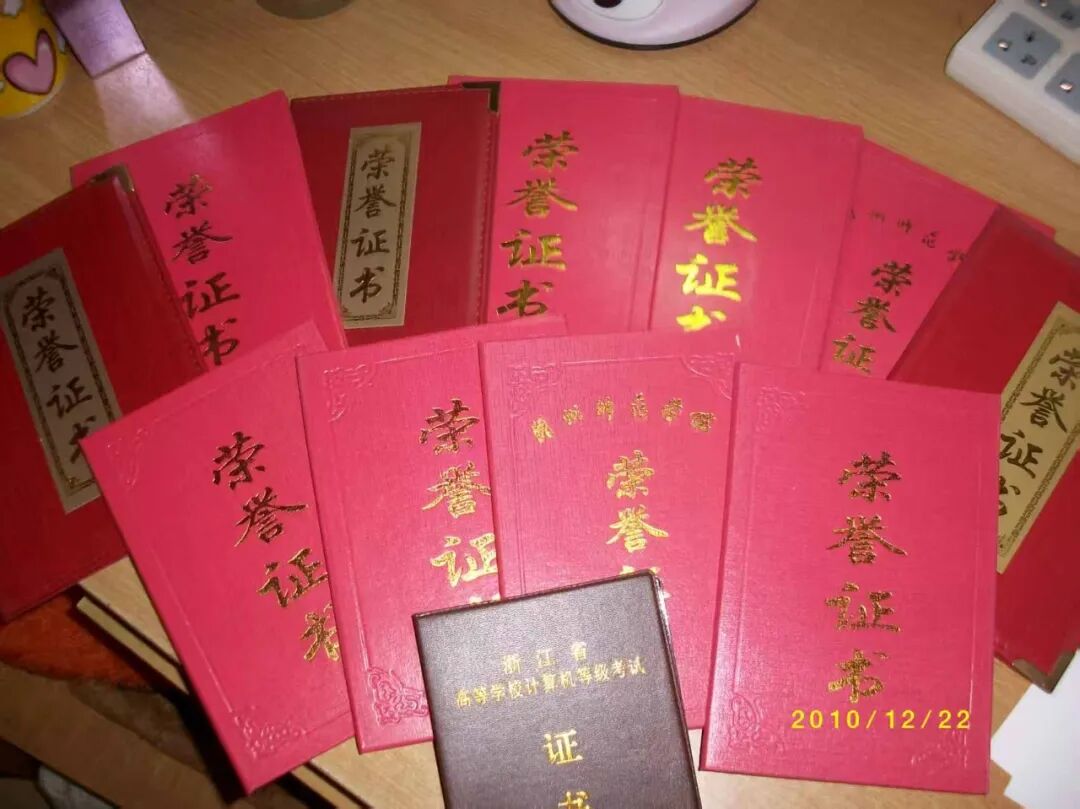 荣誉证书
荣誉证书
荣誉证书
荣誉证书
荣誉证
州师范
荣誉证
荣誉证书
荣誉证书
荣誉证
州师范学院
荣誉
荣誉证书
浙江省
高等学校计算机等级考试
证书
2010/12/22